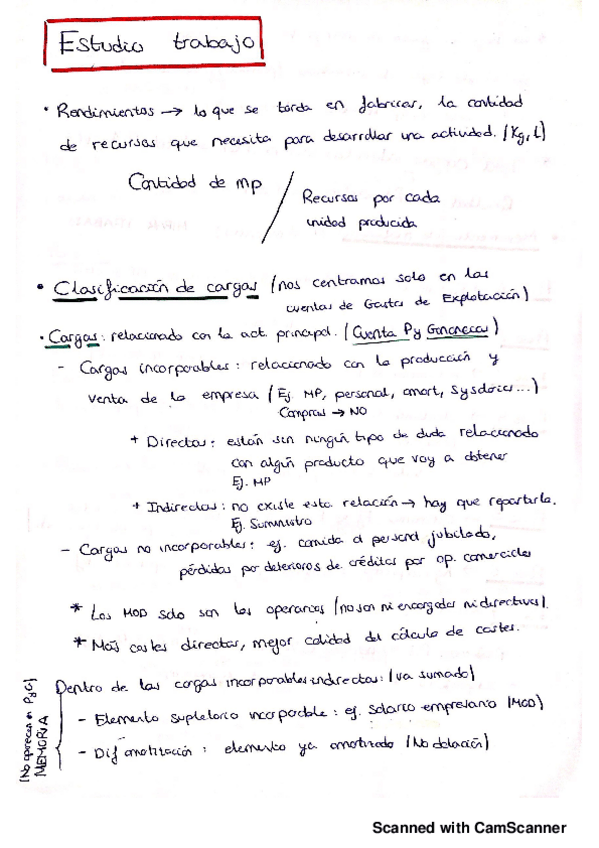 Estudio trabajo
• Rendimientos → lo que se tarda en fabricar, la cantidad
de recursos que necesita para desarrollar una actividad. (Kg, L)
Cantidad de mp / Recursos por cada
unidad producida
• Clasificación de cargas (nos centramos solo en las
cuentas de Gastos de Explotación)
• Cargas: relacionado con la act. principal. (Cuenta P y Ganancias)
- Cargas incorporables: relacionado con la producción y
venta de la empresa (Ej MP, personal, amort, sydories...)
Compras → NO
+ Directas: están sin ningún tipo de duda relacionado
con algún producto que voy a obtener
Ej. MP
+ Indirectas: no existe esta relación → hay que repartirla.
Ej. Suministro
- Cargas no incorporables: ej. comida al personal jubilado,
pérdidas por deterioros de créditos por op. comerciales
* Los MOD solo son los operarios (no son ni encargados ni directivos).
* Más costes directos, mejor calidad del cálculo de costes.
(No aparecen en PyG)
MEMORIA
Dentro de las cargas incorporables indirectas: (va sumado)
- Elemento supletorio incorporable: ej. salario empresario (MOD)
- Dif amotización: elemento ya amotizado (No dotación)
Scanned with CamScanner